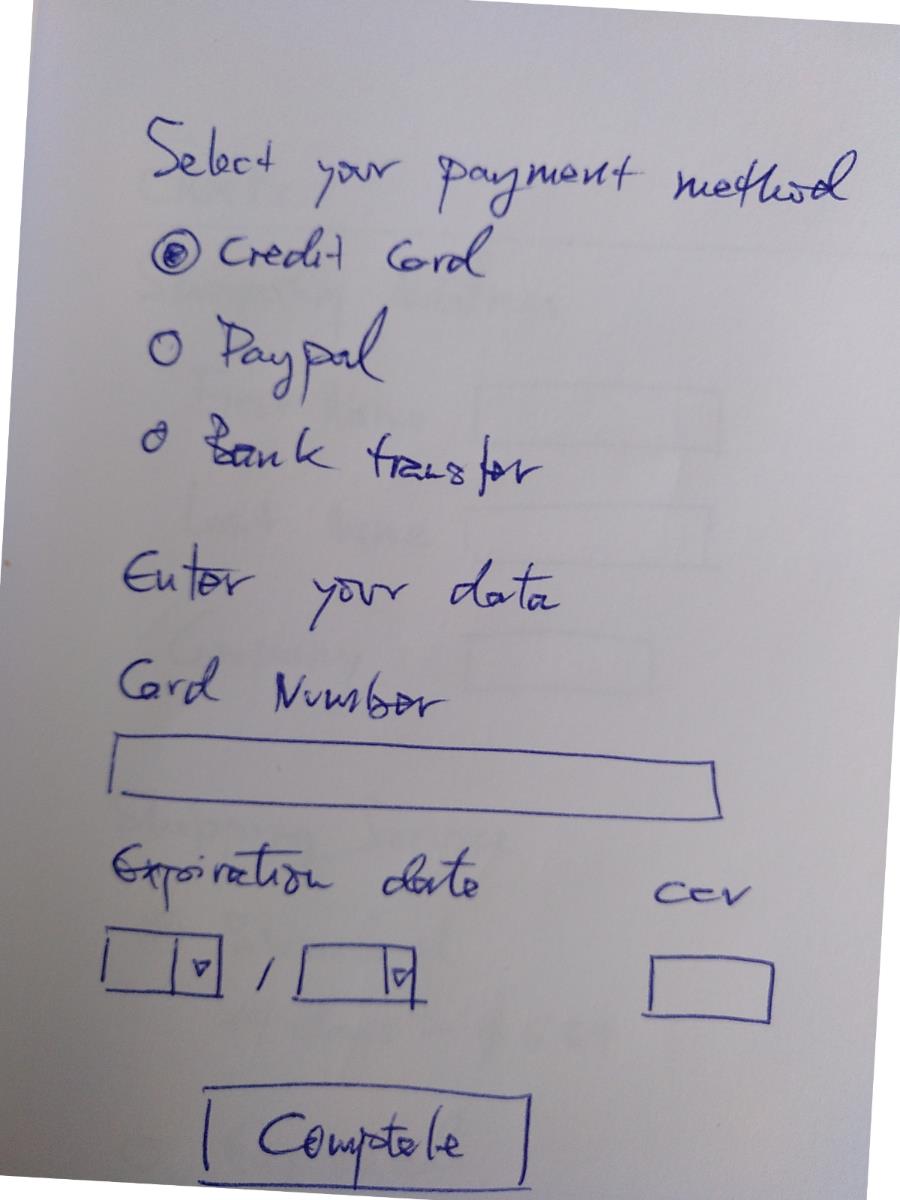 Select your payment method
Credit Card
Paypal
Bank transfer
Enter your data
Card Number
Expiration date ccv
/
Comptele